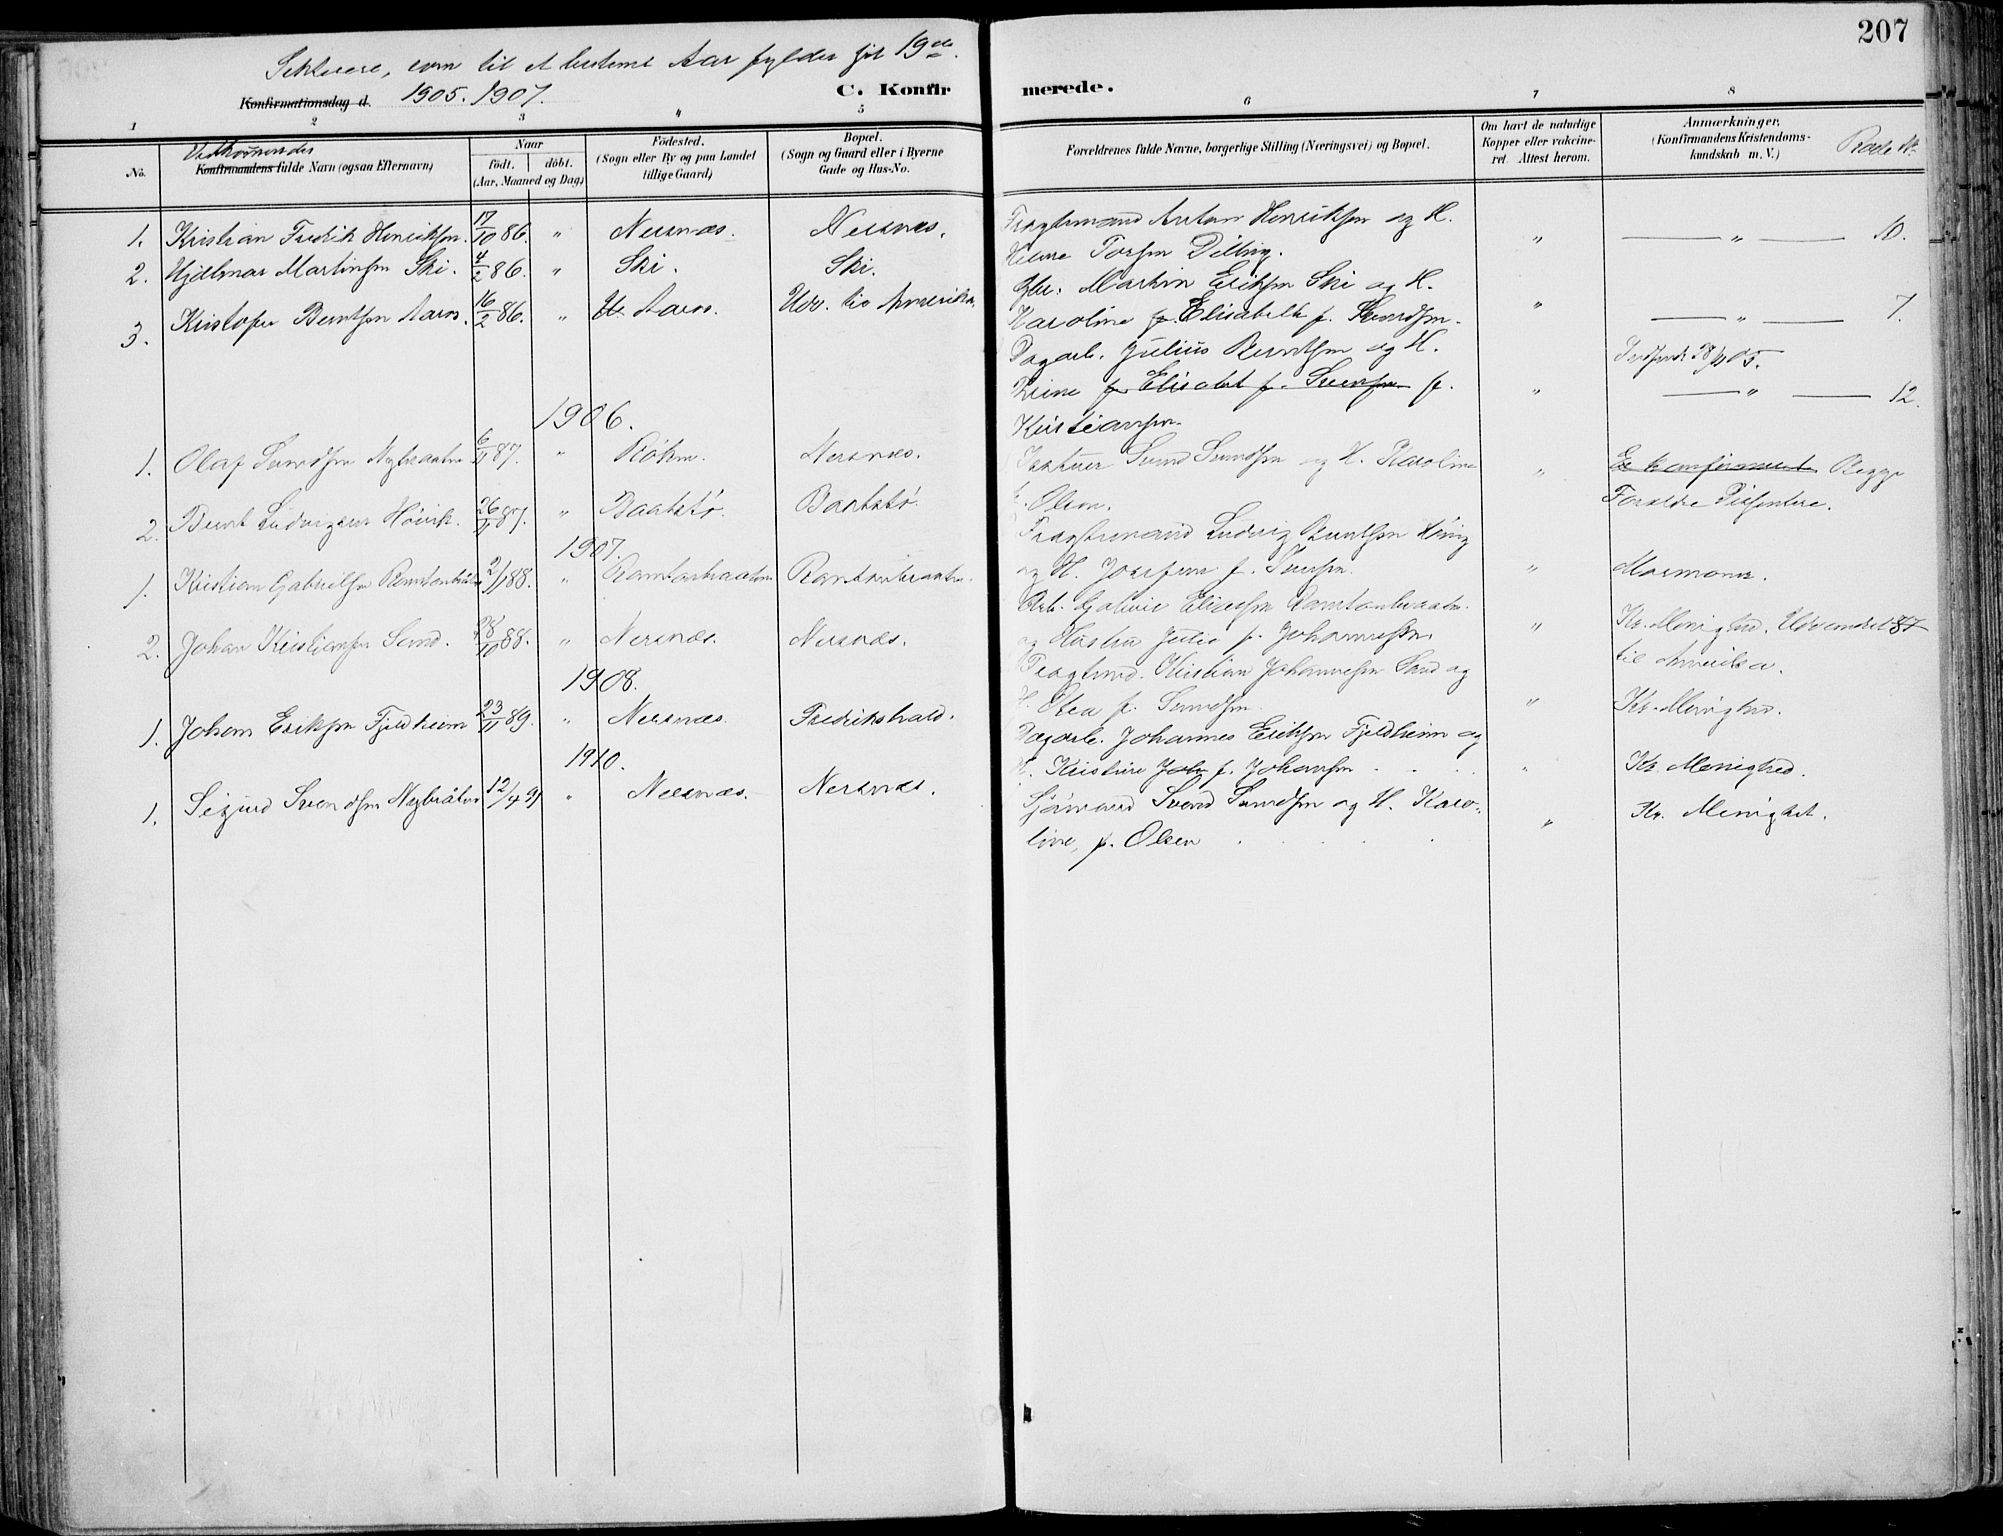 207
Sekterere, som til et bestemt Aar fylder sit 19de
Konfirmationsdag d. 1905. 1907.
C. Konfirmerede.
1 2 3 4 5 6 7 8
No.
Vedkommendes
Konfirmandens fulde Navn (ogsaa Efternavn)
Naar
födt. döbt.
(Aar, Maaned og Dag)
Födested.
(Sogn eller By og paa Landet
tillige Gaard)
Bopæl.
(Sogn og Gaard eller i Byerne
Gade og Hus-No.
Forældrenes fulde Navne, borgerlige Stilling (Næringsvei) og Bopæl.
Om havt de naturlige
Kopper eller vakcine-
ret. Attest herom.
Anmærkninger.
(Konfirmandens Kristendoms-
kundskab m. V.)
1. Kristian Fredrik Henriksen. 17/10 86. " Nersnæs. Nersnæs.
Fragtemand Anton Henriksen og H.
" " 10.
2. Hjalmar Martinsen Ski. 4/2 86. " Ski. Ski.
Gbr. Martin Eriksen Ski og H.
Karoline Elisabeth f. Svendsen.
" " 7.
3. Kristofer Berntsen Aarss. 16/2 86. " Aarss. Udv. til Amerika.
Dagarb. Julius Berntsen og H.
f Elisabet f. Svensen f.
Kristiansen.
" " 12.
1906.
1. Olaf Svendsen Nybraaten 6/11 87. " Nersnæs.
Svend Svendsen og H. Karoline
f. Olsen.
" Er konfirmeret Begge
Forældre Dissentere.
2. Bernt Ludvigsen Høvik. 26/11 87. " Baatstø. Baatstø.
Fragtemand Ludvig Berntsen
og H. Josefine f. Jensen.
" Mormoner.
1907.
1. Kristian Gabrielsen 2/1 88. "
Arb.
og Hustru Julie f. Johannessen
" Kr. Menighed. Udvandret 87
til Amerika.
2. Johan Kristiansen Sand. 28/10 88. " Nersnæs. Nersnæs.
Fragtmd. Kristian Johannesen Sand og
H. Olea f. Svendsen.
" Kr. Menighed.
1908.
1. Johan Eriksen Fjeldheim 23/11 89. " Nersnæs. Fredrikshald.
Dagarb. Johannes Eriksen Fjeldheim og
H. Kristine Joh f. Johansen
" Kr. Menighed.
1910.
1. Sigurd Svendsen Nybråten 12/4 91 " Nersnæs. Nersnæs.
Sjømand Svend Svendsen og H. Karo-
line, f. Olsen
" Kr. Menighet.